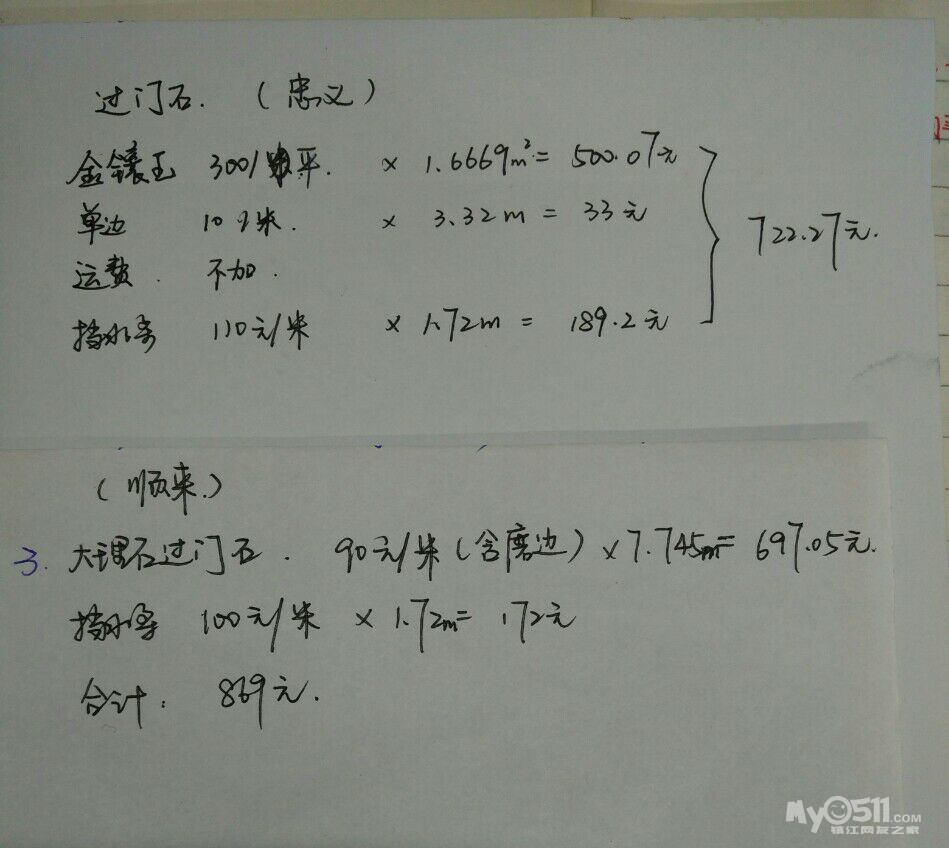 过门石. (忠义)
金镶玉 300/平. × 1.6669m² = 500.07元
单边 10元/米. × 3.32m = 33元
运费. 不加.
挡水条 110元/米 × 1.72m = 189.2元
722.27元.
(顺来.)
3. 大理石过门石. 90元/米(含磨边) × 7.745m = 697.05元.
挡水条 100元/米 × 1.72m = 172元
合计: 869元.
My0511.COM
镇江网友之家